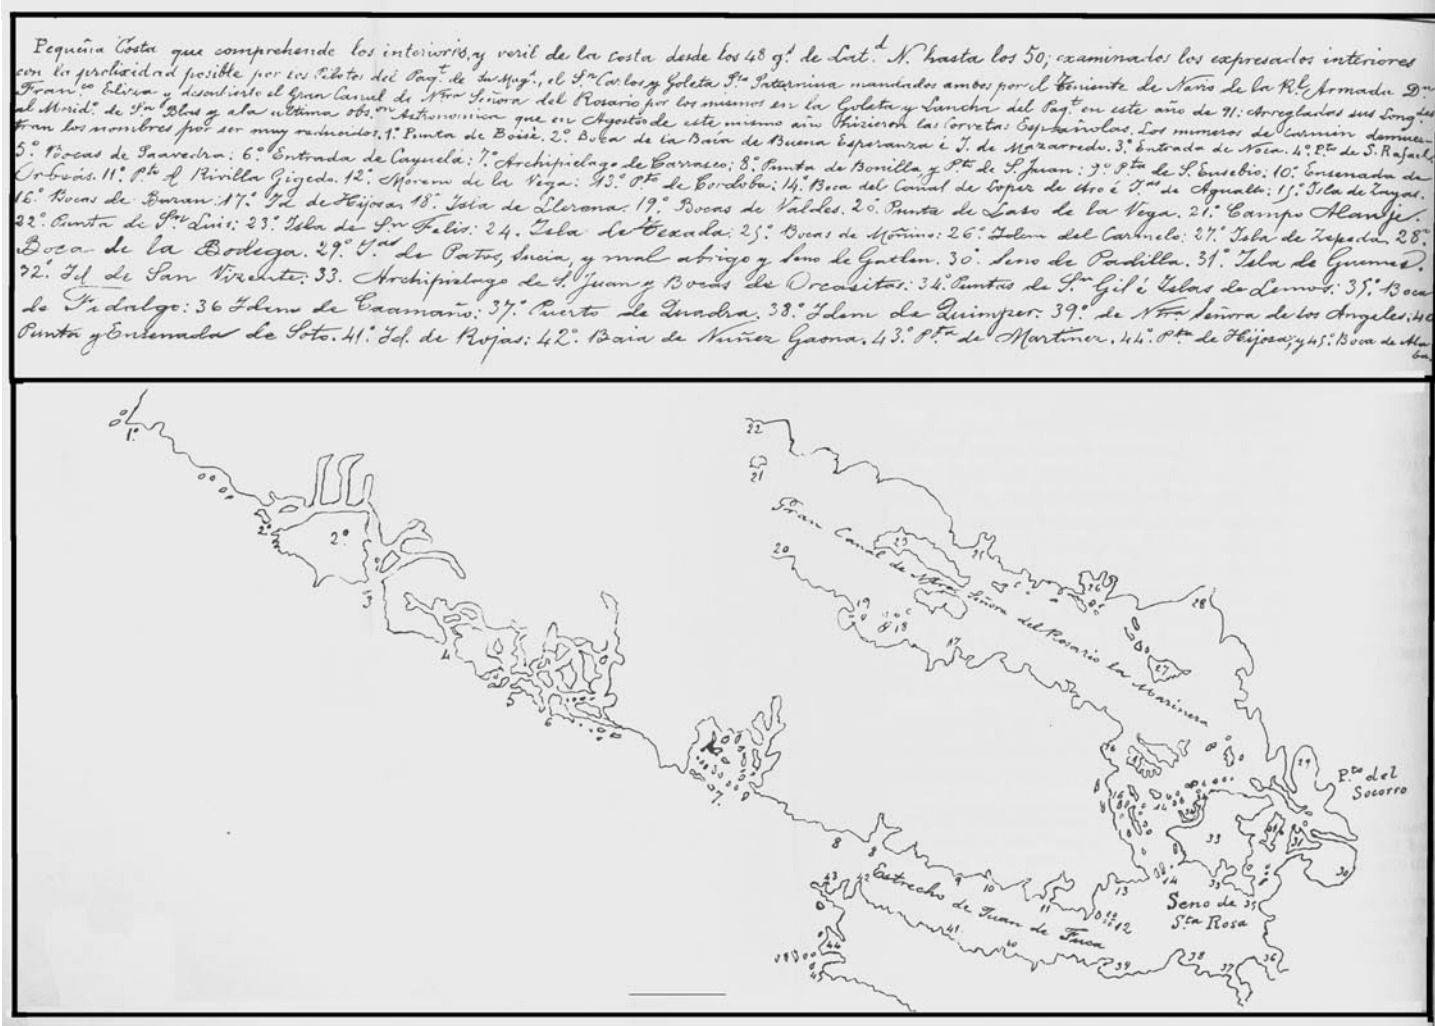 Pequeña Costa que comprehende los interioris, y veril de la costa desde los 48 g.s de Lat.d N. hasta los 50; examinados los expresados interiores
con la prolixidad posible por los Pilotos del Paq.t de Su Mag.d, el S.n Carlos y Goleta S.ta Saturnina mandados ambos por el Teniente de Navio de la R.l Armada D.n
Fran.co Eliza y descubierto el Gran Canal de N.tra Señora del Rosario por los mismos en la Goleta y Lancha del Paq.t en este año de 91: Arregladas sus Longdes
al Merid.o de S.n Blas y a la ultima obs.on Astronomica que en Agosto de este mismo año hizieron las Corvetas Españolas. Los numeros de Carmin demues-
tran los nombres por ser muy reducidos. 1.o Punta de Boise. 2.o Boca de la Baía de Buena Esperanza é I. de Mazarredo. 3.o Entrada de Noca. 4.o P.to de S. Rafael.
5.o Bocas de Saavedra: 6.o Entrada de Cayuela: 7.o Archipielago de Carrasco: 8.o Punta de Bonilla y P.to de S. Juan: 9.o P.ta de S. Eusebio: 10.o Ensenada de
Orbeás. 11.o P.to d Rivilla Gigedo. 12.o Moreno de la Vega: 13.o P.to de Cordoba: 14.o Boca del Canal de Lopez de Aro é I.as de Aguallo: 15.o Isla de Zayas.
16.o Bocas de Bazan: 17.o Id. de Hijosa. 18.o Isla de Llerena. 19.o Bocas de Valdes. 20. Punta de Laso de la Vega. 21.o Campo Alanje.
22.o Punta de S.n Luis: 23.o Isla de S.n Felis: 24. Isla de Texada: 25.o Bocas de Moñino: 26.o Idem del Carmelo: 27.o Isla de Zepeda. 28.o
Boca de la Bodega. 29.o I.as de Patos, Sucia, y mal abrigo y Seno de Gaston. 30. Seno de Padilla. 31.o Isla de Guemes.
32.o Id. de San Vizente: 33. Archipielago de S. Juan y Bocas de Orcasitas: 34. Puntas de S.n Gil é Islas de Lemos: 35.o Boca
de Fidalgo: 36 Idem de Caamaño: 37.o Puerto de Quadra. 38.o Idem de Quimper. 39.o de N.tra Señora de los Angeles. 40
Punta y Ensenada de Soto. 41.o Id. de Rojas: 42.o Baia de Nuñez Gaona. 43.o P.ta de Martinez. 44.o P.ta de Hijosa; y 45.o Boca de Ala
ba.
1.o
22
21
2.o
2.o
Gran Canal de N.tra Señora del Rosario la Marinera
23
25
20
26
3
19
18
28
17
4
27
5
6
16
15
29
P.to del
Socorro
7.
16
14
34
33
31
30
8
8
9
10
11
13
12
14
33
35
43
42
Estrecho de Juan de Fuca
Seno de
S.ta Rosa
41
40
44
45
39
38
37
36